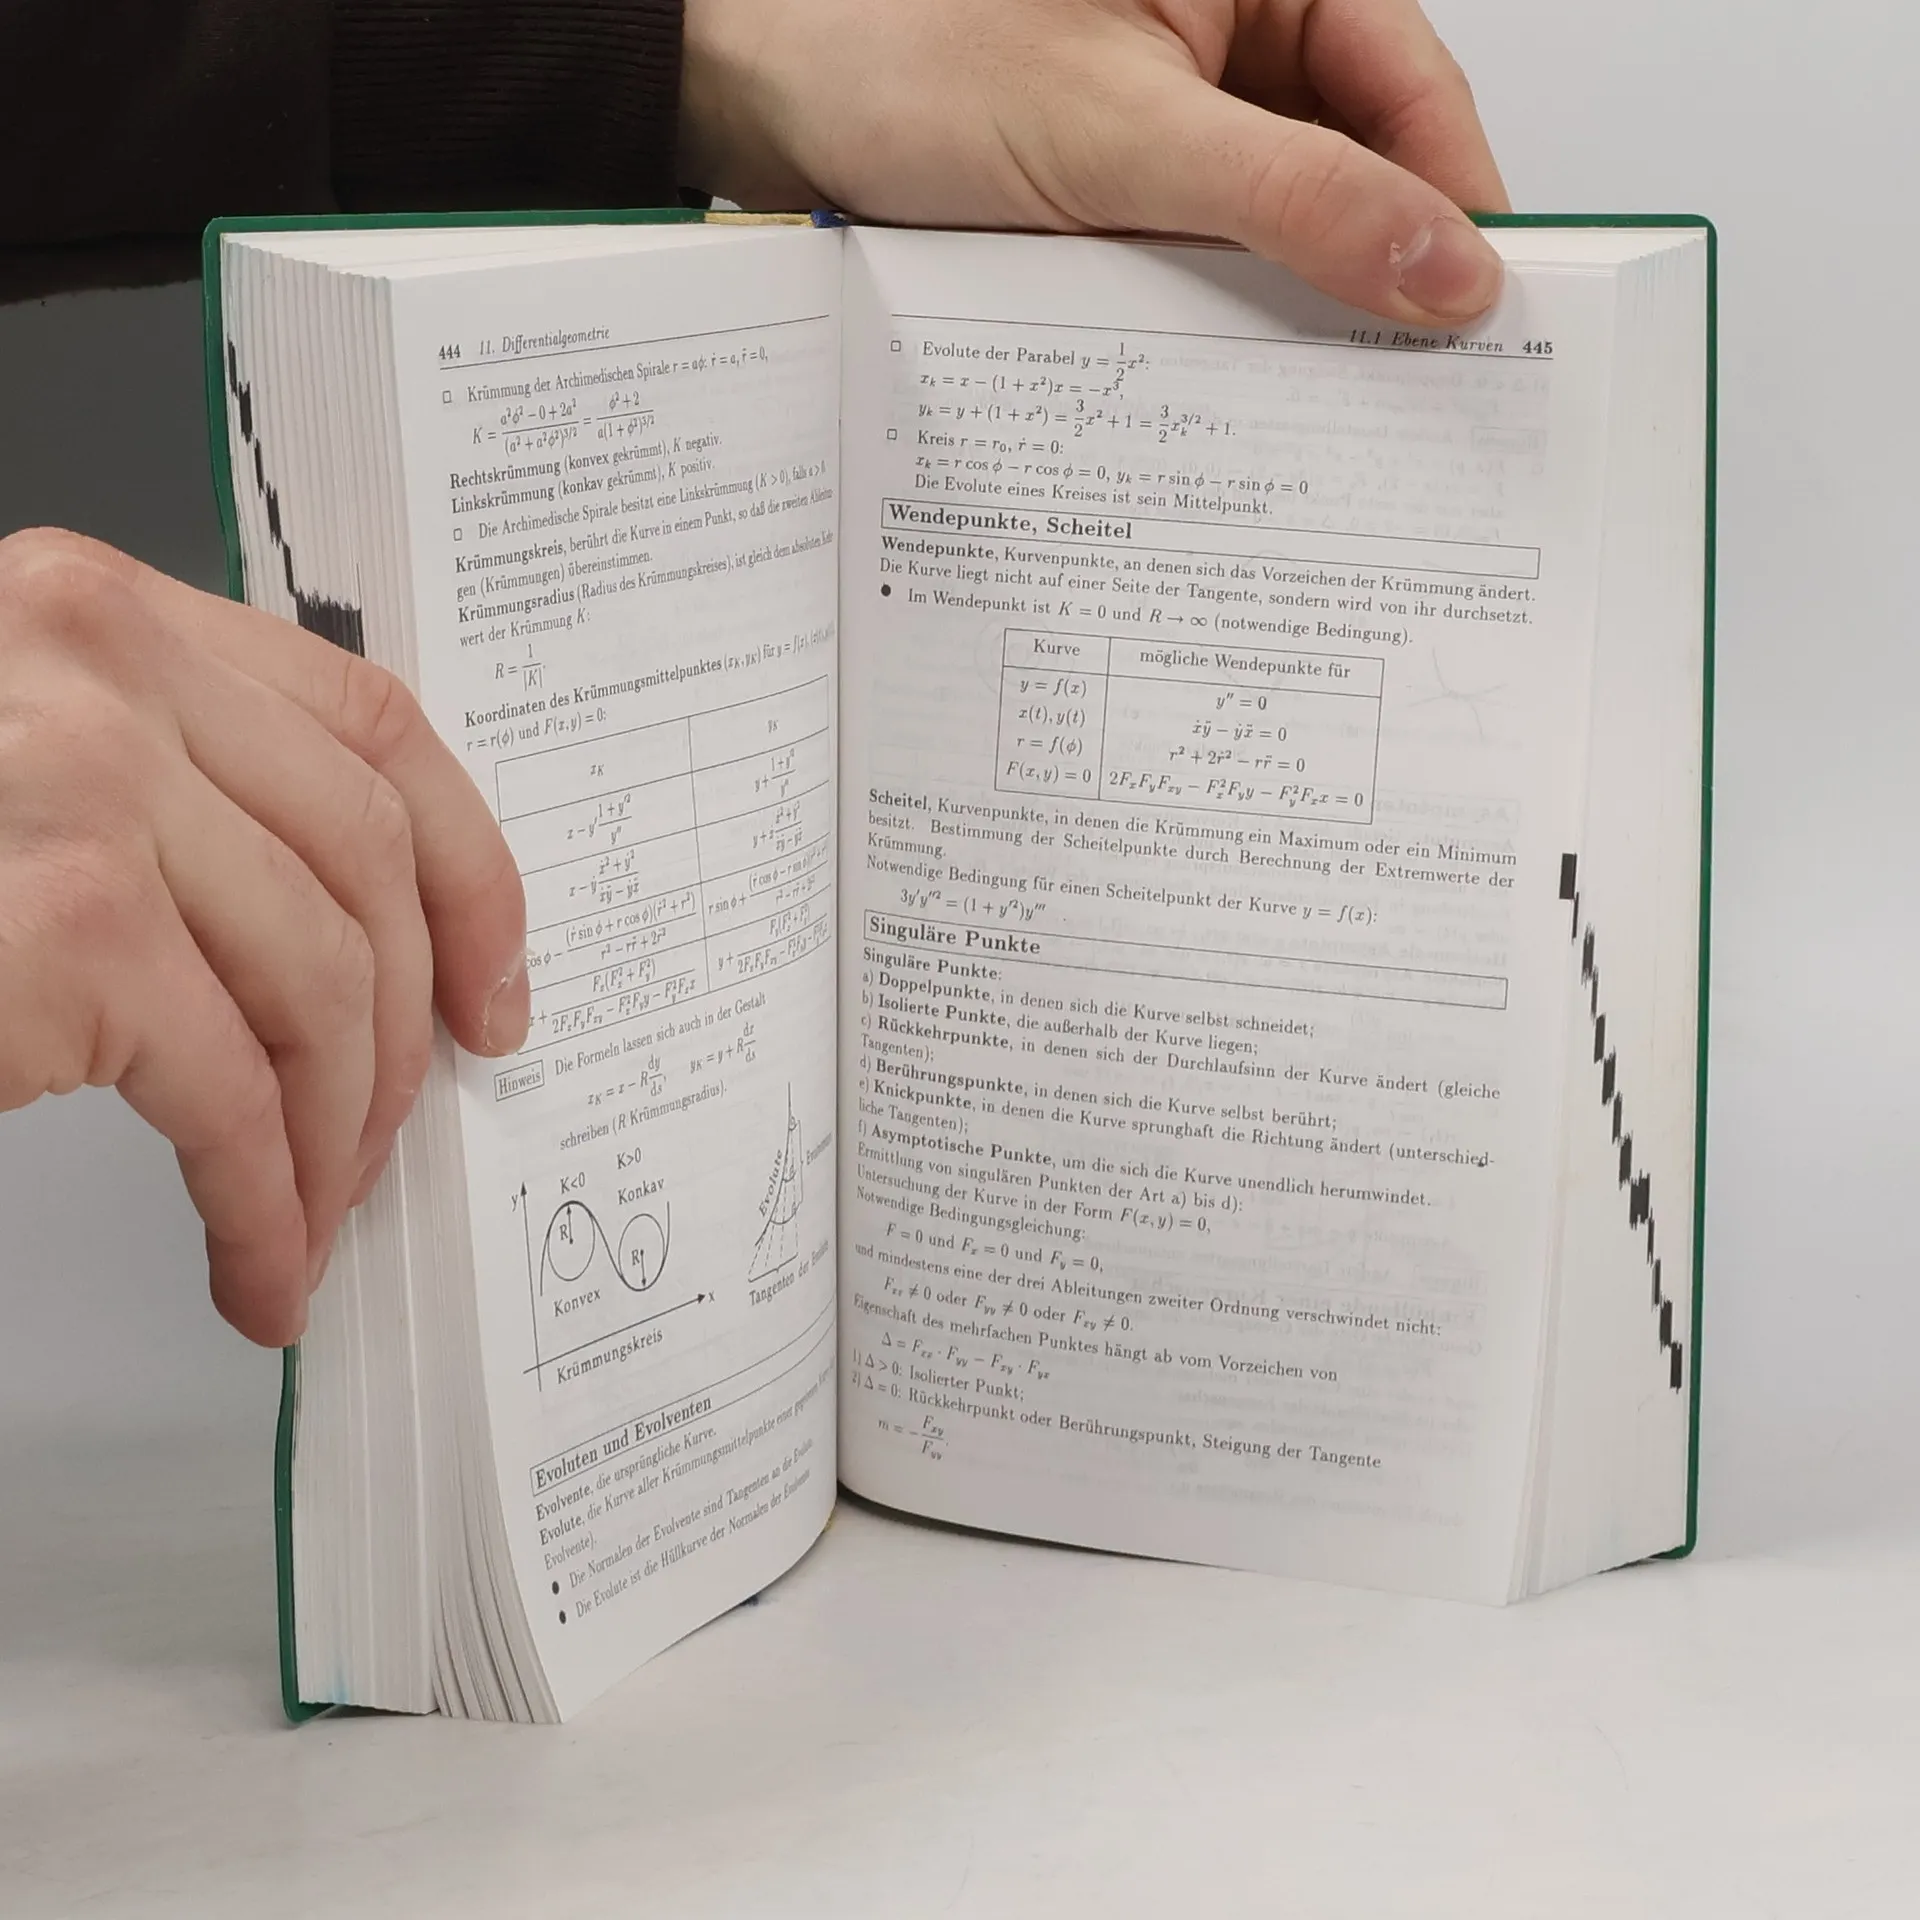 444 11. Differentialgeometrie
□ Krümmung der Archimedischen Spirale r = aϕ: ṙ = a, r̈ = 0,
K = (a²ϕ² − 0 + 2a²)/(a² + a²ϕ²)^{3/2} = (ϕ² + 2)/(a(1 + ϕ²)^{3/2})
Rechtskrümmung (konvex gekrümmt), K negativ.
Linkskrümmung (konkav gekrümmt), K positiv.
□ Die Archimedische Spirale besitzt eine Linkskrümmung (K > 0), falls a > 0.
Krümmungskreis, berührt die Kurve in einem Punkt, so daß die zweiten
gen (Krümmungen) übereinstimmen.
Krümmungsradius (Radius des Krümmungskreises), ist gleich dem absoluten
wert der Krümmung K:
R = 1/|K|.
Koordinaten des Krümmungsmittelpunktes (x_K, y_K) für y = f(x),
r = r(ϕ) und F(x, y) = 0:
x_K y_K
x − y′(1 + y′²)/y″ y + (1 + y′²)/y″
x − ẏ(ẋ² + ẏ²)/(ẋÿ − ẏẍ) y + ẋ(ẋ² + ẏ²)/(ẋÿ − ẏẍ)
cos ϕ − (ṙ sin ϕ + r cos ϕ)(ṙ² + r²)/(r² − rr̈ + 2ṙ²) r sin ϕ +
x + F_x(F_x² + F_y²)/(2F_xF_yF_xy − F_x²F_yy − F_y²F_xx) y + F_y(F_x² + F_y²)/(2F_xF_yF_xy − F_x²F_yy − F_y²F_xx)
Hinweis Die Formeln lassen sich auch in der Gestalt
x_K = x − R dy/ds, y_K = y + R dx/ds
schreiben (R Krümmungsradius).
y K<0 K>0
Konkav
R R
Konvex
x
Krümmungskreis
Evolute
Tangenten der Evolute
Evoluten und Evolventen
Evolvente, die ursprüngliche Kurve.
Evolute, die Kurve aller Krümmungsmittelpunkte einer gegebenen
Evolvente).
● Die Normalen der Evolvente sind Tangenten an die Evolute.
● Die Evolute ist die Hüllkurve der Normalen der Evolvente
11.1 Ebene Kurven 445
□ Evolute der Parabel y = 1/2 x²:
x_k = x − (1 + x²)x = −x³,
y_k = y + (1 + x²) = 3/2 x² + 1 = 3/2 x_k^{3/2} + 1.
□ Kreis r = r₀, ṙ = 0:
x_k = r cos ϕ − r cos ϕ = 0, y_k = r sin ϕ − r sin ϕ = 0
Die Evolute eines Kreises ist sein Mittelpunkt.
Wendepunkte, Scheitel
Wendepunkte, Kurvenpunkte, an denen sich das Vorzeichen der Krümmung ändert.
Die Kurve liegt nicht auf einer Seite der Tangente, sondern wird von ihr durchsetzt.
● Im Wendepunkt ist K = 0 und R → ∞ (notwendige Bedingung).
Kurve mögliche Wendepunkte für
y = f(x) y″ = 0
x(t), y(t) ẋÿ − ẏẍ = 0
r = f(ϕ) r² + 2ṙ² − rr̈ = 0
F(x, y) = 0 2F_xF_yF_xy − F_x²F_yy − F_y²F_xx = 0
Scheitel, Kurvenpunkte, in denen die Krümmung ein Maximum oder ein Minimum
besitzt. Bestimmung der Scheitelpunkte durch Berechnung der Extremwerte der
Krümmung.
Notwendige Bedingung für einen Scheitelpunkt der Kurve y = f(x):
3y′y″² = (1 + y′²)y‴
Singuläre Punkte
Singuläre Punkte:
a) Doppelpunkte, in denen sich die Kurve selbst schneidet;
b) Isolierte Punkte, die außerhalb der Kurve liegen;
c) Rückkehrpunkte, in denen sich der Durchlaufsinn der Kurve ändert (gleiche
Tangenten);
d) Berührungspunkte, in denen sich die Kurve selbst berührt;
e) Knickpunkte, in denen die Kurve sprunghaft die Richtung ändert (unterschied-
liche Tangenten);
f) Asymptotische Punkte, um die sich die Kurve unendlich herumwindet.
Ermittlung von singulären Punkten der Art a) bis d):
Untersuchung der Kurve in der Form F(x, y) = 0,
Notwendige Bedingungsgleichung:
F = 0 und F_x = 0 und F_y = 0,
und mindestens eine der drei Ableitungen zweiter Ordnung verschwindet nicht:
F_xx ≠ 0 oder F_yy ≠ 0 oder F_xy ≠ 0.
Eigenschaft des mehrfachen Punktes hängt ab vom Vorzeichen von
Δ = F_xx · F_yy − F_xy · F_yx
1) Δ > 0: Isolierter Punkt;
2) Δ = 0: Rückkehrpunkt oder Berührungspunkt, Steigung der Tangente
m = − F_xy/F_yy.